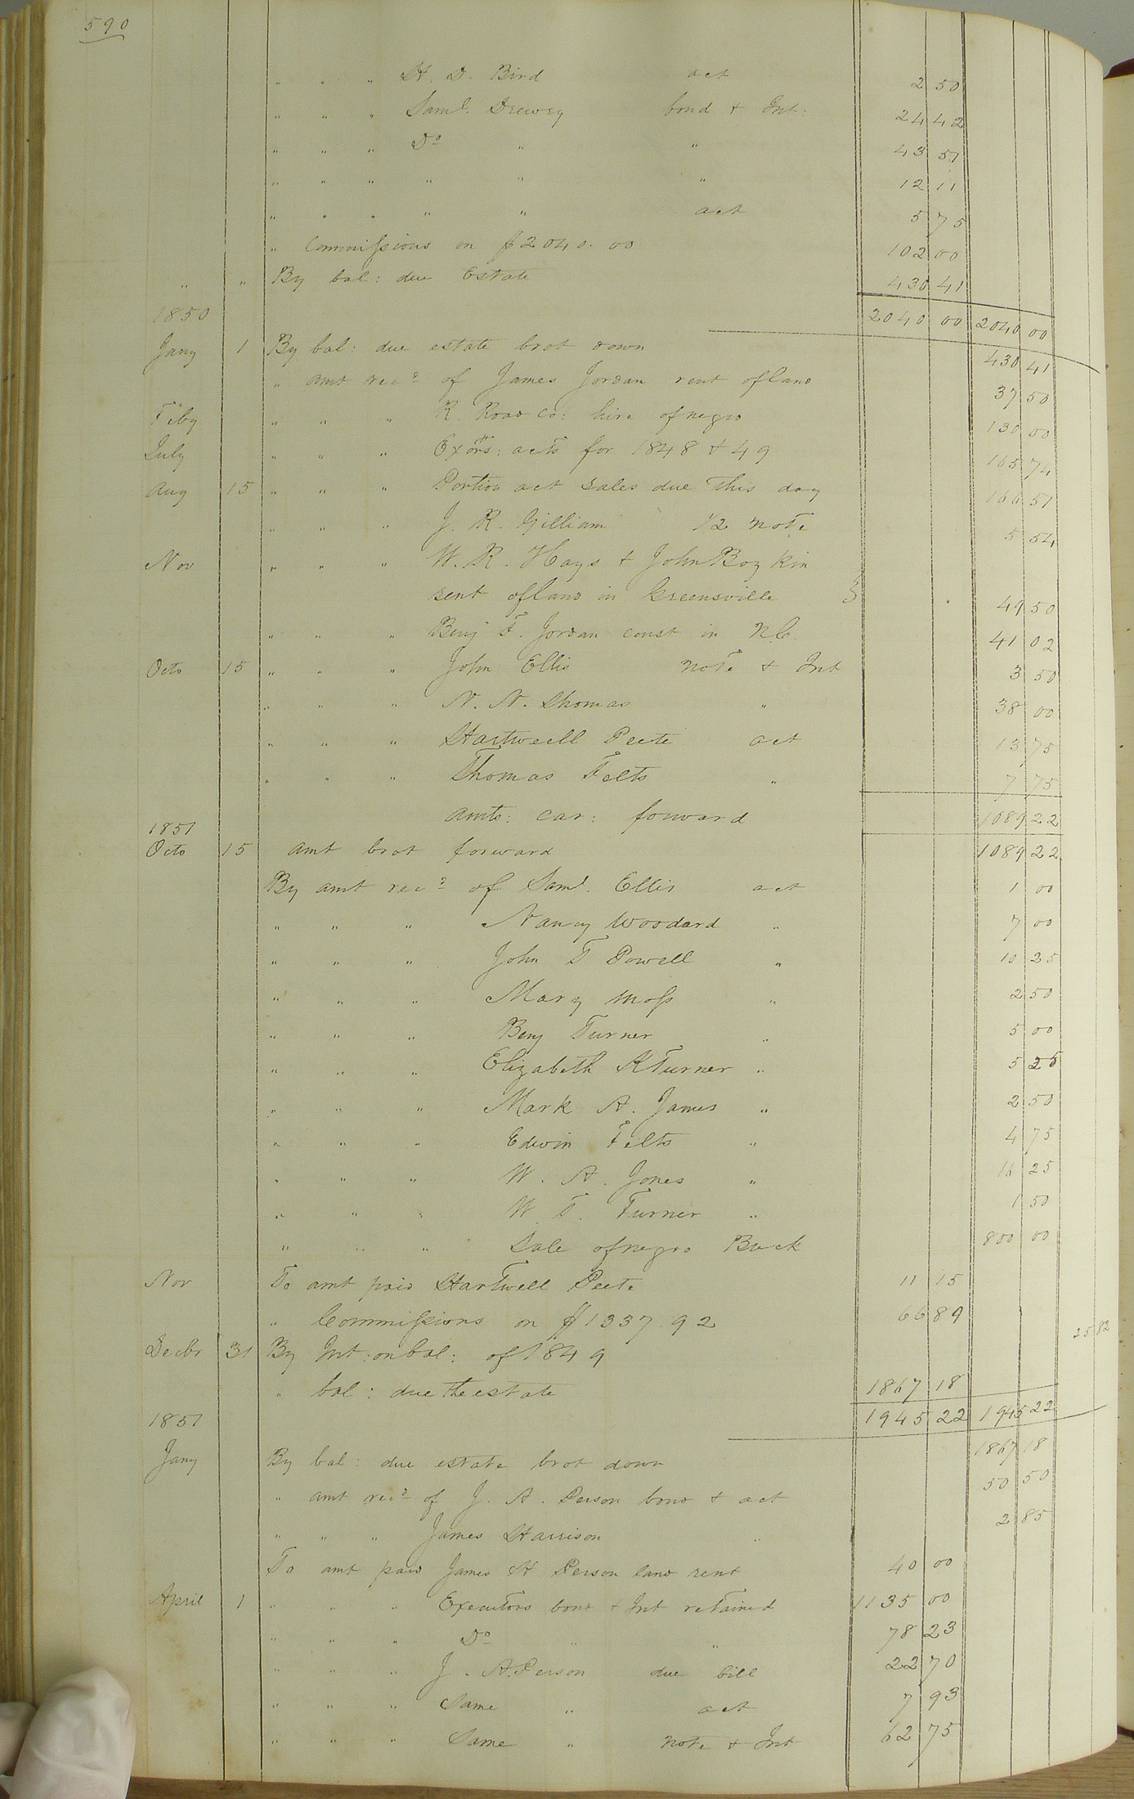 590
" " " H. D. Bird act 2 50
" " " Saml. Drewry bond & Int: 24 42
" " " Do " " 43 51
" " " " " " 12 11
" " " " " act 5 75
" Commissions on $2040.00 102 00
" " By bal: due Estate 430 41
1850 2040 00 2040 00
Jany 1 By bal: due estate brot down 430 41
" amt recd of James Jordan rent of land 37 50
Feby " " " R. Road Co: hire of negro 130 00
July " " " Exors: acts for 1848 & 49 165 74
Aug 15 " " " Portion act sales due this day 166 51
" " " J. R. Gilliam 1/2 note 5 54
Nov " " " W. R. Hays & John Boykin
rent of land in Greensville } 49 50
" " " Benj F. Jordan const in N.C. 41 02
Octo 15 " " " John Ellis note & Int 3 50
" " " N. N. Thomas " 38 00
" " " Hartwell Peete act 13 75
" " " Thomas Felts " 7 75
amts: car: forward 1089 22
1851
Octo 15 amt brot forward 1089 22
By amt recd of Saml. Ellis act 1 00
" " " Nancy Woodard " 7 00
" " " John T Powell " 10 25
" " " Mary Moss " 2 50
" " " Benj Turner " 5 00
" " " Elizabeth K Turner " 5 25
" " " Mark A. James " 2 50
" " " Edwin Felts " 4 75
" " " W. A. Jones " 16 25
" " " W. T. Turner " 1 50
" " " Sale of negro Buck 800 00
Nov To amt paid Hartwell Peete 11 15
" Commissions on $1337.92 66 89
Decbr 31 By Int: on bal: of 1849 25 82
" bal: due the estate 1867 18
1851 1945 22 1945 22
Jany By bal: due estate brot down 1867 18
" amt recd of J. A. Person bond & act 50 50
" " " James Harrison " 2 85
To amt paid James H Person land rent 40 00
April 1 " " " Executors bond & Int retained 1135 00
" " " Do " " 78 23
" " " J. A. Person due bill 22 70
" " " Same " act 7 93
" " " Same " note & Int 62 75